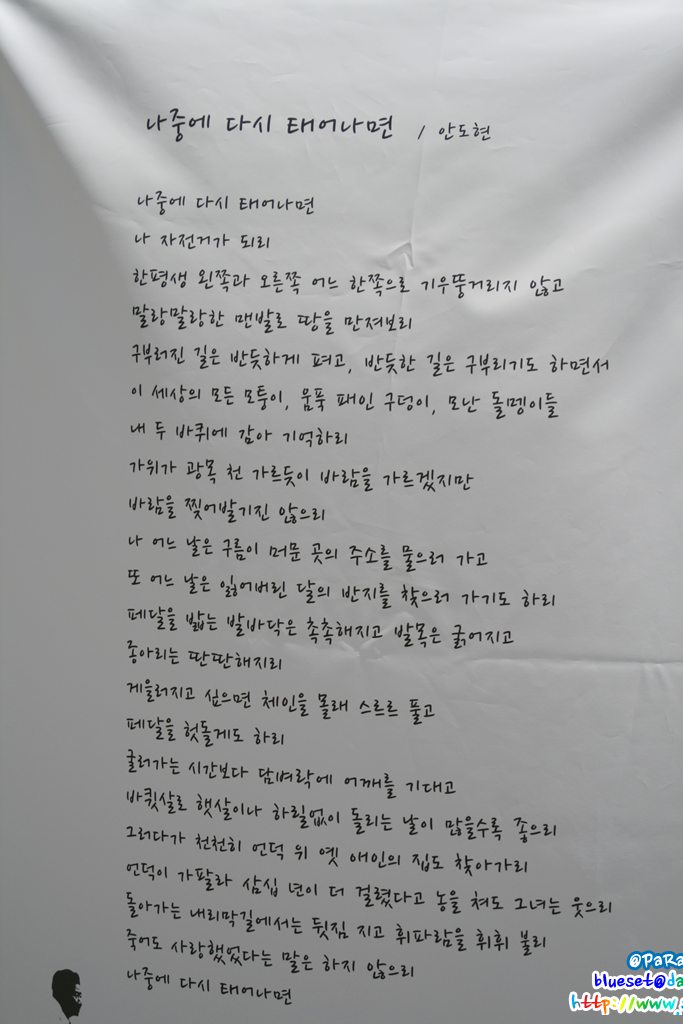 나중에 다시 태어나면 / 안도현
나중에 다시 태어나면
나 자전거가 되리
한평생 왼쪽과 오른쪽 어느 한쪽으로 기우뚱거리지 않고
말랑말랑한 맨발로 땅을 만져보리
구부러진 길은 반듯하게 펴고, 반듯한 길은 구부리기도 하면서
이 세상의 모든 모퉁이, 움푹 패인 구덩이, 모난 돌멩이들
내 두 바퀴에 감아 기억하리
가위가 광목 천 가르듯이 바람을 가르겠지만
바람을 찢어발기진 않으리
나 어느 날은 구름이 머문 곳의 주소를 물으러 가고
또 어느 날은 잃어버린 달의 반지를 찾으러 가기도 하리
페달을 밟는 발바닥은 촉촉해지고 발목은 굵어지고
종아리는 딴딴해지리
게을러지고 싶으면 체인을 몰래 스르르 풀고
페달을 헛돌게도 하리
굴러가는 시간보다 담벼락에 어깨를 기대고
바큇살로 햇살이나 하릴없이 돌리는 날이 많을수록 좋으리
그러다가 천천히 언덕 위 옛 애인의 집도 찾아가리
언덕이 가팔라 삼십 년이 더 걸렸다고 농을 쳐도 그녀는 웃으리
돌아가는 내리막길에서는 뒷짐 지고 휘파람을 휘휘 불리
죽어도 사랑했었다는 말은 하지 않으리
나중에 다시 태어나면
@PaRa
blueset@da
http://www.